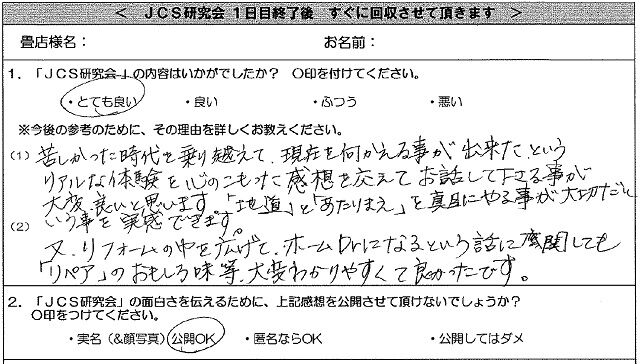 ＜ ＪＣＳ研究会 １日目終了後 すぐに回収させて頂きます ＞
畳店様名： お名前：
１．「ＪＣＳ研究会」の内容はいかがでしたか？ 〇印を付けてください。
・とても良い ・良い ・ふつう ・悪い
※今後の参考のために、その理由を詳しくお教えください。
(1) 苦しかった時代を乗り越えて、現在を何かえる事が出来た、という
リアルな体験を心のこもった感想を交えてお話して下さる事が
大変、良いと思います。「地道」と「あたりまえ」を真面にやる事が大切だと
いう事を実感できます。
(2)
又、リフォームの中を広げて、ホームDrになるという話に しても
「リペア」のおもしろ味等、大変わかりやすくて良かったです。
２．「ＪＣＳ研究会」の面白さを伝えるために、上記感想を公開させて頂けないでしょうか？
〇印をつけてください。
・実名（＆顔写真）公開OK ・匿名ならOK ・公開してはダメ